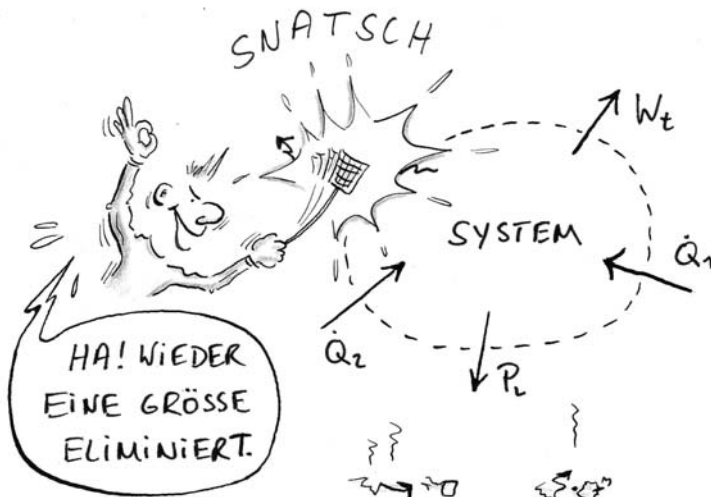 SNATSCH
Wt
SYSTEM
Q̇1
Q̇2
PL
HA! WIEDER
EINE GRÖSSE
ELIMINIERT.